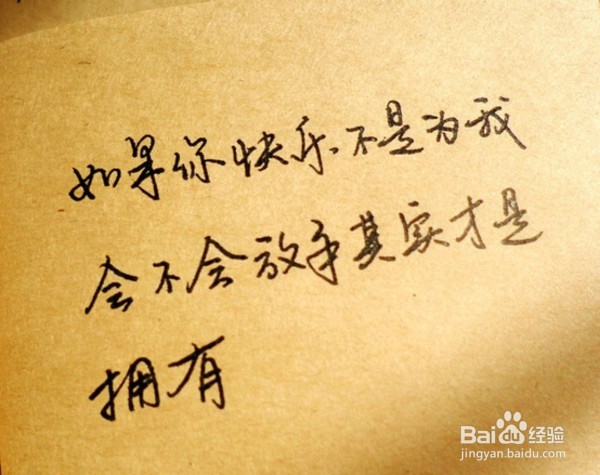 如果你快乐不是为我
会不会放手其实才是
拥有
Baidu经验
jingyan.baidu.com